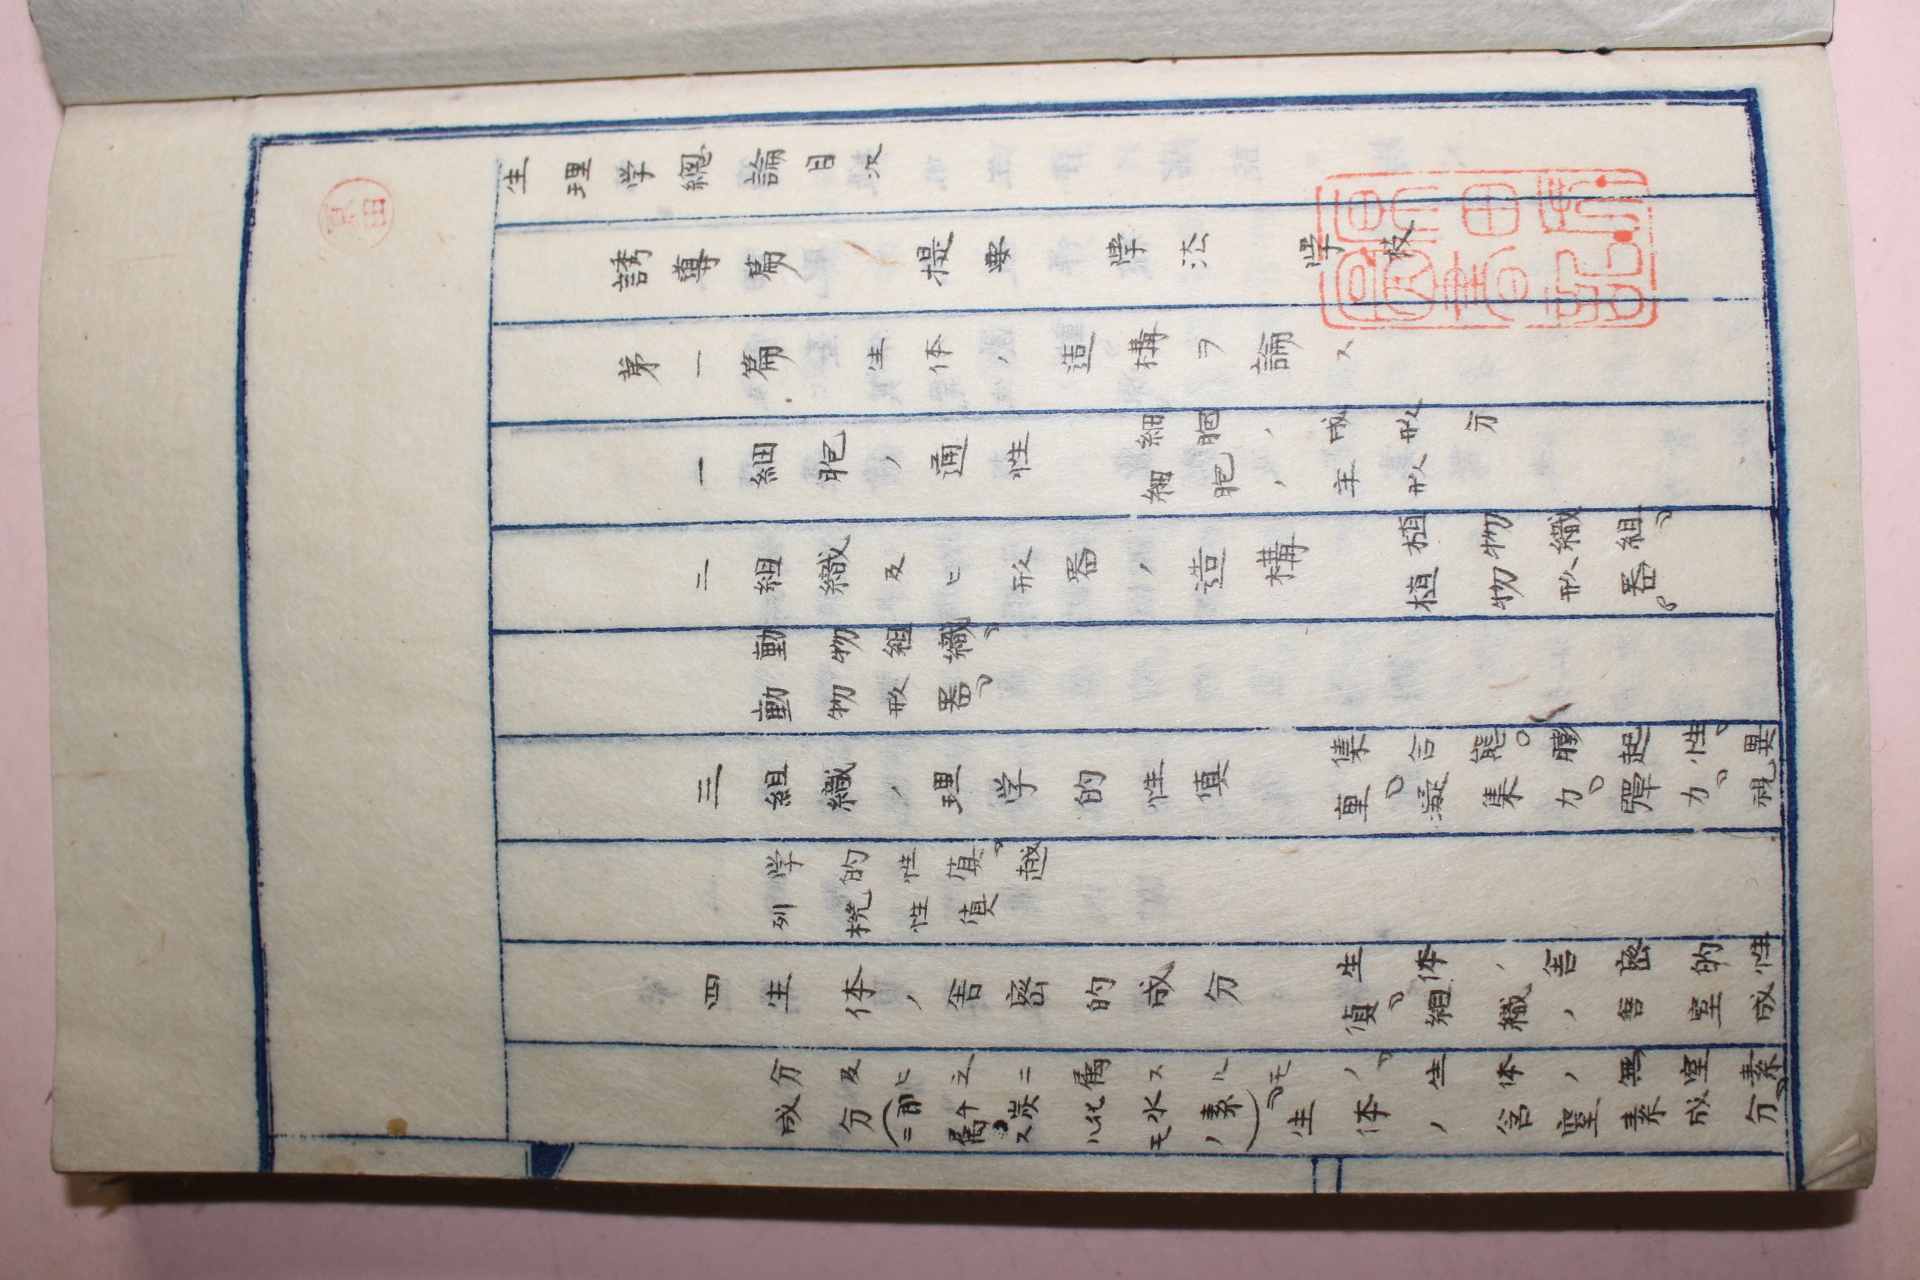 生理学總論目次
誘導篇 提要 学法 学枝
第一篇 生体ノ造構ヲ論ス
一 細胞ノ通性 細胞ノ成形分
細胞ノ主形
二 組織及ヒ形器ノ造構 植物織組、
植物形器。
動物組織、
動物形器、
三 組織ノ理学的性質 集合態。膨起性、異
重、凝集力、彈力、視
学的性質、越
列機性質
四 生体ノ舎密的成分 生体ノ舎密的性
質、組織ノ舎密成
分及ヒ之ニ属スルモノ、生体ノ無窒素
成分(而〆炭化水素ニ属スルモノ)、生体ノ含窒素成分、
原田
原田
書記